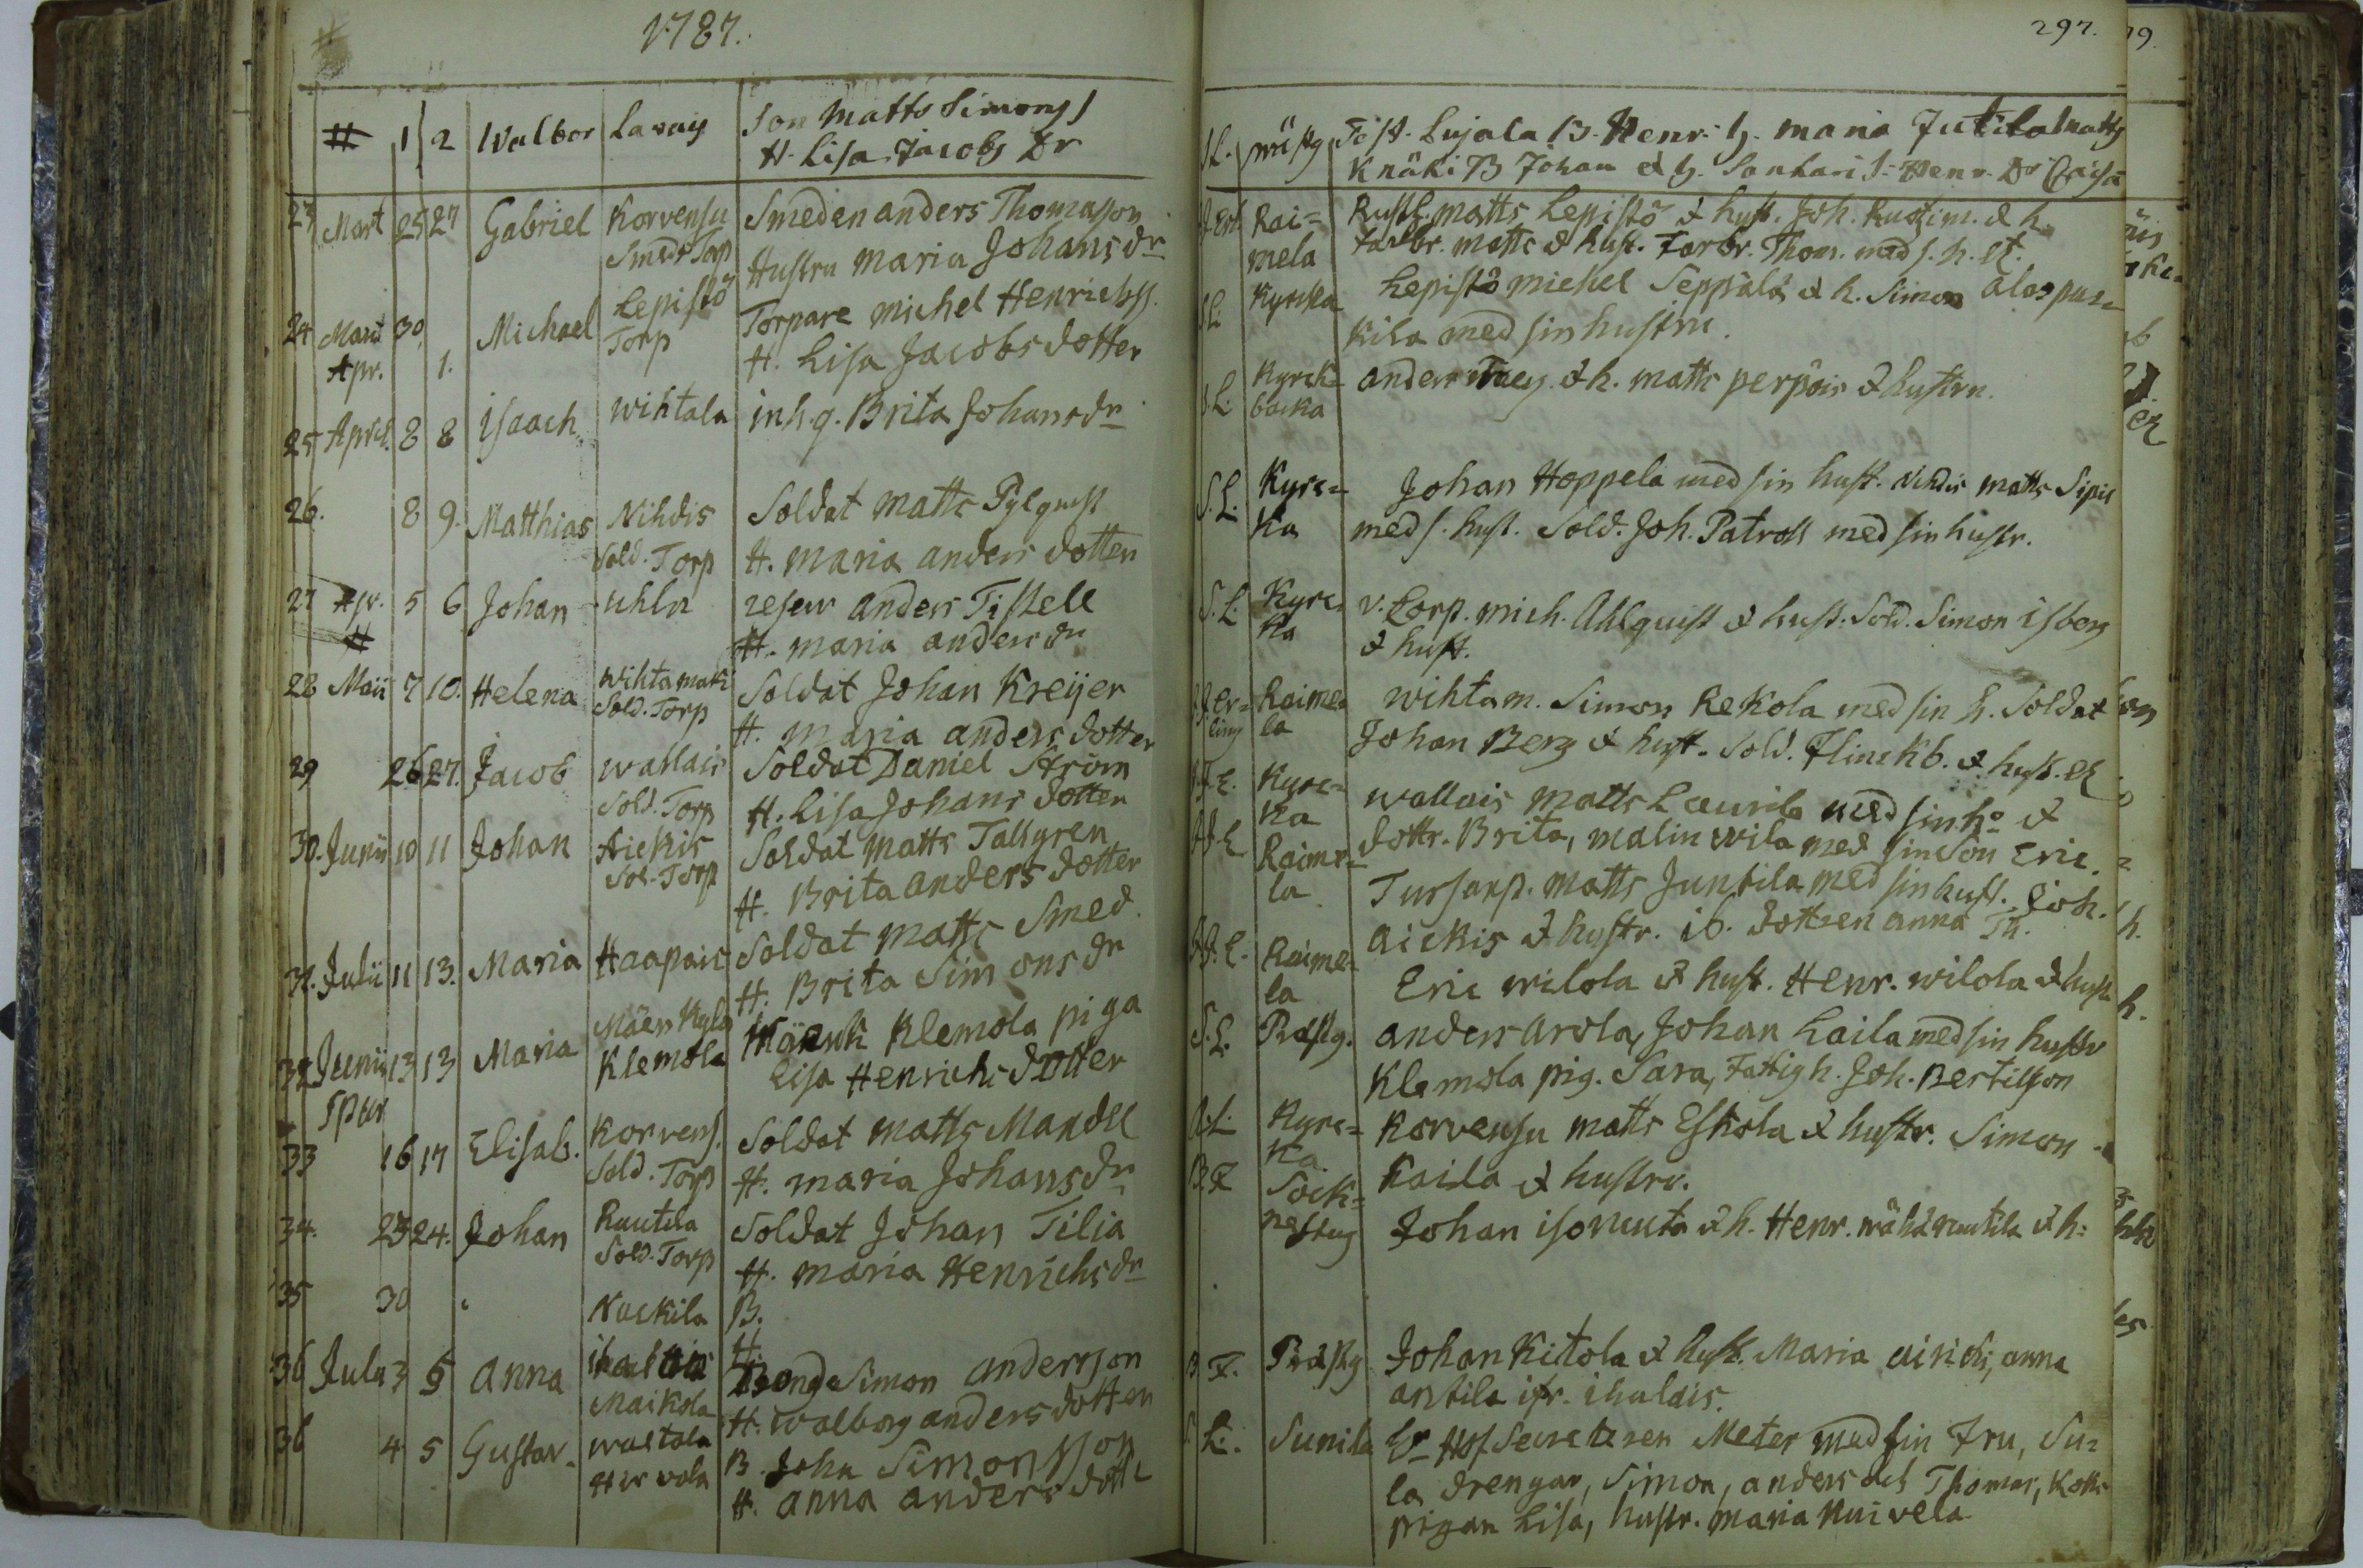 1787.
# 1 2 Walbor Son Matts Simons
H. Lisa Jacobs Dr
23 Mart 25 27 Gabriel Korvensu Smeden anders Thomasson
Smeds Torp Hustru Maria Johans dr
24 Marti 30. Michael Lepistö Torp Torpare michel Henrichss.
Apr. 1. H. Lisa Jacobs dotter
25 April. 8 8 Isaach wihtala inh. q. Brita Johansdr
26. 8 9. Matthias Nihdis Soldat matts Pylquist
Sold. Torp H. maria anders dotter
27 Apr. 5 6 Johan uhln anders Tistell
# H. maria anders dr
28 Maii 7 10. Helena wihtamaki Soldat Johan Kreijer
Sold. Torp H. maria anders dotter
29 26 27. Jacob wallais Soldat Daniel Ström
Sold. Torp H. Lisa Johans dotter
30. Junii 10 11 Johan Aickis Soldat matts Tallgren
Sol. Torp H. Brita anders dotter
31. Julii 11 13. Maria Haapais Soldat matts Smed.
H. Brita Simons dr
32 Junii 13 13 Maria Mäenkylä Klemola piga
Klemola Lisa Henrichs dotter
33 16 17 Elisab. Korvens. Soldat matts Mandel
Sold. Torp H. maria Johans dr
34. 23 24. Johan Ruutila Soldat Johan Tilia
Sold. Torp H. maria Henrichs dr
35 30 Nuckila B.
H.
36 Julii 3 5 anna Dreng Simon andersson
Maikola H. walborg anders dotter
36 4 5 Gustav. waltola B. Joha Simonsson
Hirvola H. anna anders dott
297.
S.L. präsg Lujala B. Henr. h. maria Jutila matts
Knäki B Johan & h. Sontari S. Henr. Dr Caisa
Rai= Rusth. matts Lepistö & hust. Joh. & h.
mela farbr. matts & hust. Farbr. Thom. med s. h. et.
S.L. Kyrcka Lepistö michel Seppälä & h. Simon
kila med sin hustru.
S.L. Kyrck= anders & h. matts perpois & hustru.
backa
S.L. Kyrc= Johan Hoppela med sin hust. Nihdis matts Sipis
ka med s. hust. Sold. Joh. Patroll med sin hustr.
S.L. Kyrc= v. Corp. mich. Ahlquist & hust. Sold. Simon isberg
ka & hust.
Raime= wihtam. Simon Rekola med sin h. Soldat
la Johan Berg & hust. Sold. Flinckb. & hust. et
Kyrc= wallais matts Laurila med sin ho &
ka dottr. Brita, malin wila med sin Son Eric.
Raime= Tursanp. matts Juntila med sin hust. Joh.
la Aickis & hustr. ib. dottren anna
Raime= Eric wilola & hust. Henr. wilola & hust
la
S.L. Prästg. anders arola, Johan Laila med sin hustr
Klemola pig. Sara, Fattigh. Joh. Bertilsson
Kyrc= Korvensu matts Eskola & hustr. Simon
ka Kaila & hustru.
B.F. Sock= Johan isoruuta & h. Henr. wähäruutila & h:
nestug
B.F. Prästg Johan Kitola & hust. Maria anna
antila ihalais.
L. Sunila Hr HofSecreteren Meter med sin Fru, Su=
la drengar, Simon, anders och Thomas, koks
pigan Lisa, hustr. maria Knivela